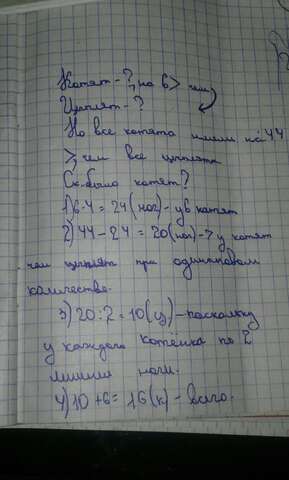 Котят - ?, на 6 > чем
Цыплят - ?
Но все котята имели на 44
>, чем все цыплята
Ск. было котят?
1) 6·4 = 24 (ног) - у 6 котят
2) 44 - 24 = 20 (ног) - > у котят
чем цыплят при одинаковом
количестве.
3) 20 : 2 = 10 (ц) - поскольку
у каждого котёнка по 2
лишние ноги.
4) 10 + 6 = 16 (к) - всего.